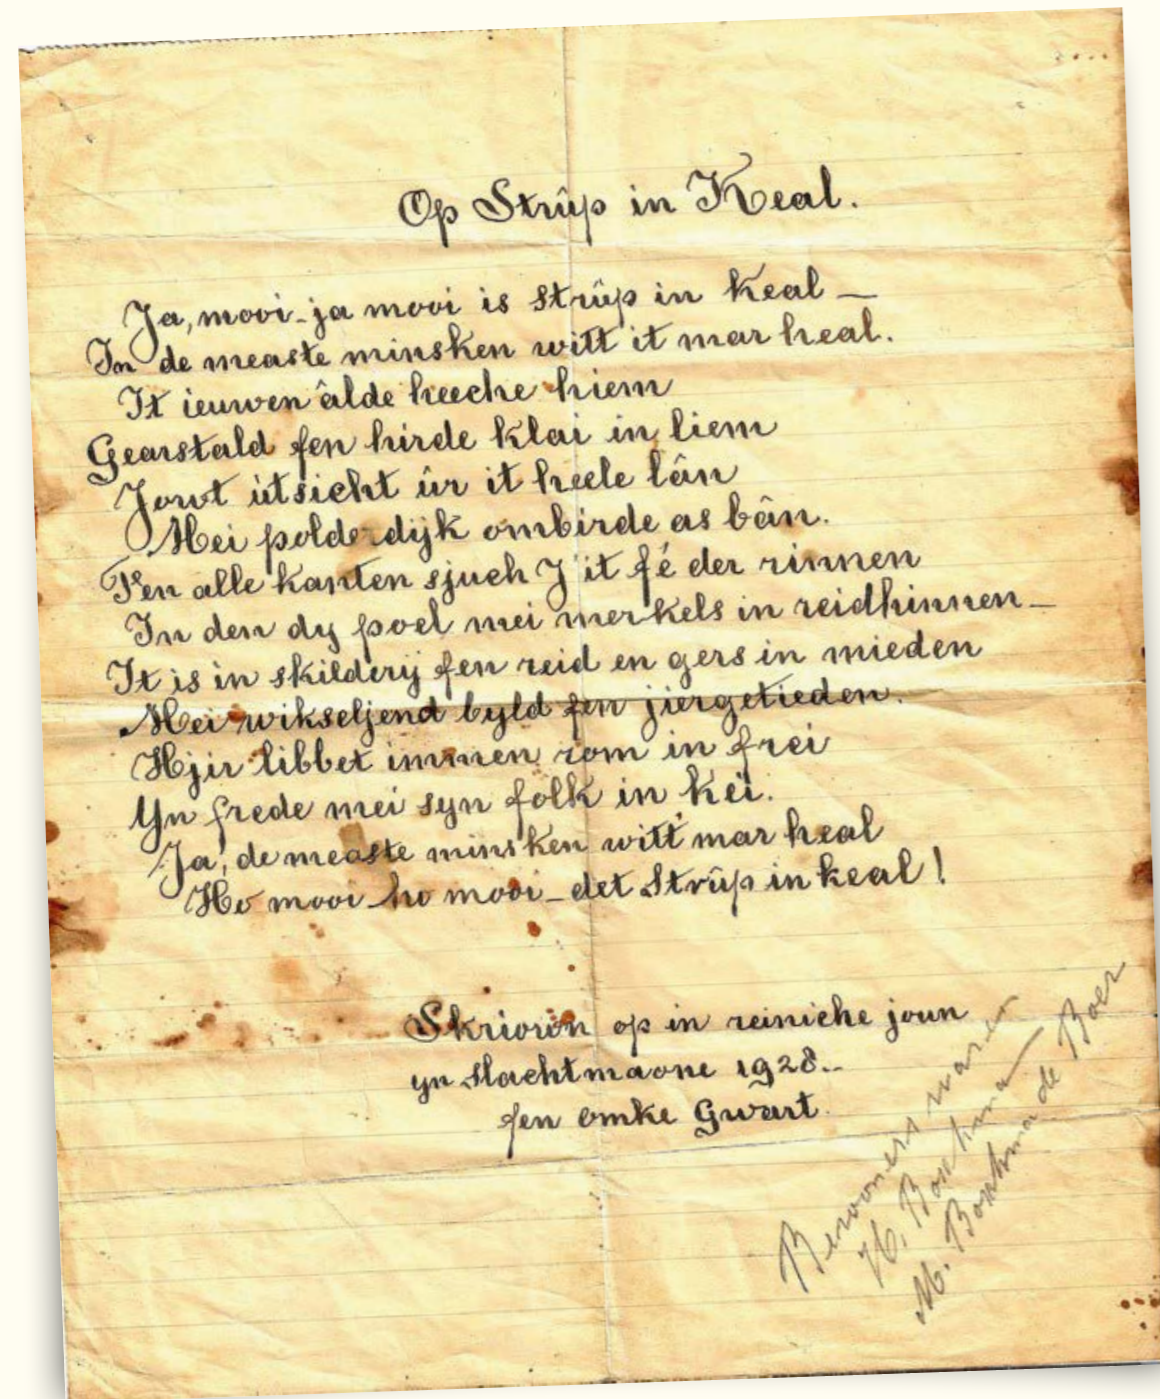 Op Strûp in Keal.
Ja, mooi - ja mooi is Strûp in Keal —
In de measte minsken witt it mar heal.
It ieuwen âlde heeche hiem
Gearstald fen hirde klai in liem
Jowt útsicht ûr it heele lân
Mei polderdijk ombirde as bân.
Fen alle kanten sjuch J it fé der rinnen
In den dy poel mei merkels in reidhinnen —
It is in skilderij fen reid en gers in mieden
Mei wikseljend byld fen jiergetieden.
Hjir libbet immen rom in frei
Yn frede mei syn folk in kei.
Ja, de measte minsken witt' mar heal
Ho mooi - ho mooi - det Strûp in keal!
Skriown op in reiniche joun
yn Slachtmaone 1928..
fen omke Gwart.
Bewoners waren
H. Bouhuma
M. Bouhuma de Boer